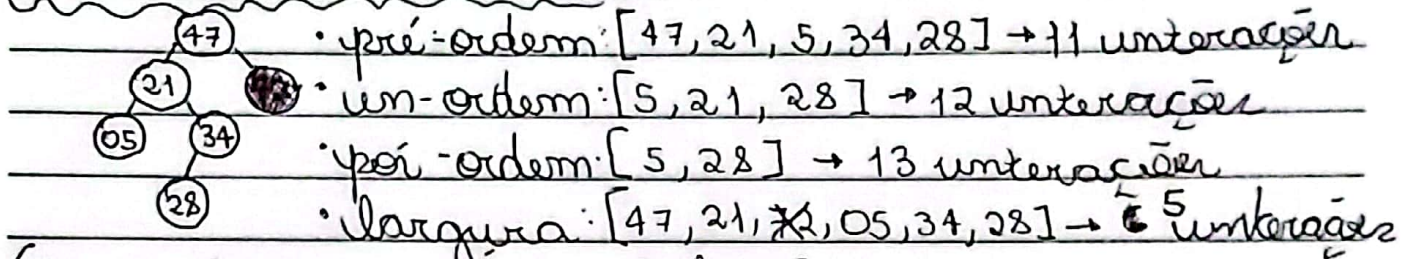 47 · pré-ordem: [47, 21, 5, 34, 28] → 11 interações
21 · in-ordem: [5, 21, 28] → 12 interações
05 34 · pós-ordem: [5, 28] → 13 interações
28 · largura: [47, 21, 72, 05, 34, 28] → 5 interações